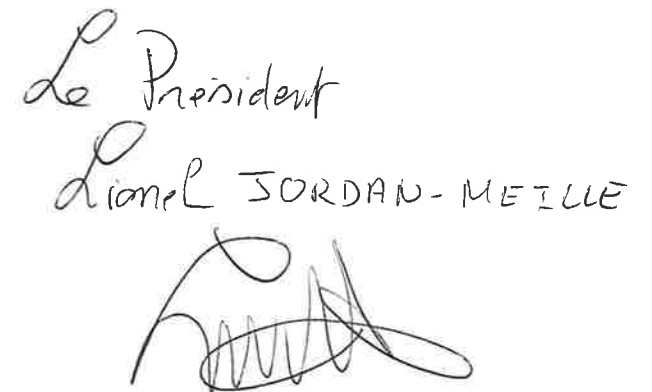 Le Président
Lionel JORDAN-MEILLE